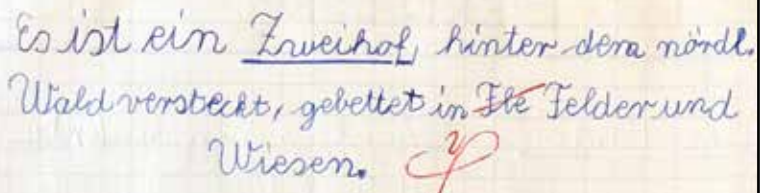 Es ist ein Zweihof, hinter dem nördl.
Wald versteckt, gebettet in Fle Felder und
Wiesen.